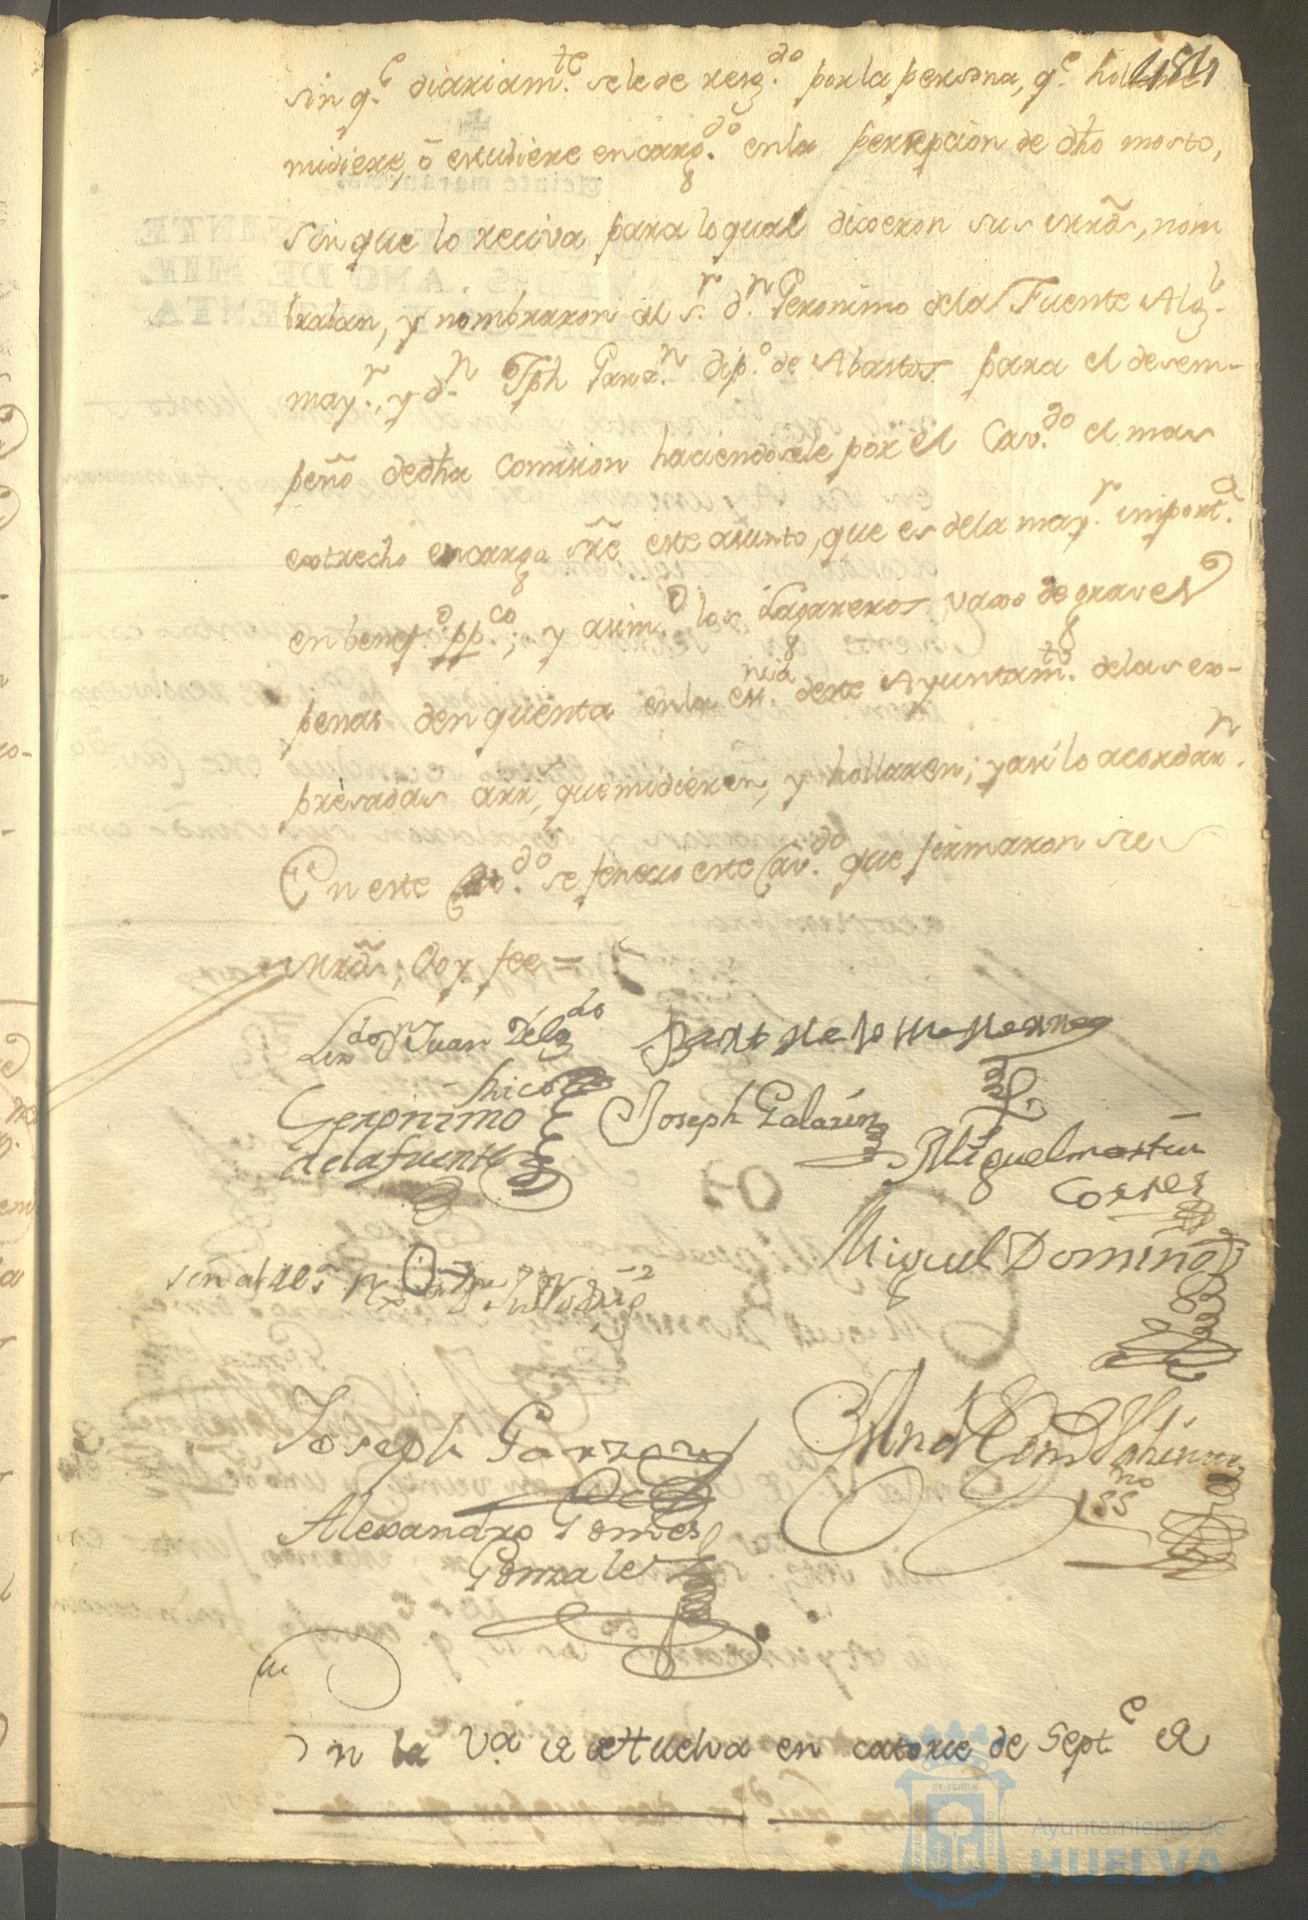 184
sin q.e diariam.te se le de resg.do por la persona, q.e hollare
midiere, ô estubiere encarg.do en la persepcion de dho mosto,
sin que lo reciva para lo qual dixeron sus mrds, nom
braban, y nombraron al s.r d.n Geronimo de la Fuente Alg.l
may.r, y d.n Jph Garz.n dip.o de Abastos para el desem-
peño de dha Comision haciendosele por el Cav.do el mas
extrecho encargo sre este asunto, que es de la may.r import.a
en benef.o pp.co; y asim.o los Lagareros vaxo de graves
penas den quenta en la ess.nia deste Ayuntam.to de las ex-
presadas arr, que midieren, y hollaren; y asi lo acordar.n
En este est.do se fenecio este Cav.do que firmaron sus
mrds; Doy fee =
Lizdo dn Juan Delgdo
chico
Geronimo
de la fuente
Joseph Galarin
Miguel martin
Cortes
Miguel Domin
señal del sr
Joseph Garzon
Alexandro Gomes
Gonzales
ssno
En la Va de Huelva en catorce de Septe de
Ayuntamiento de
HUELVA